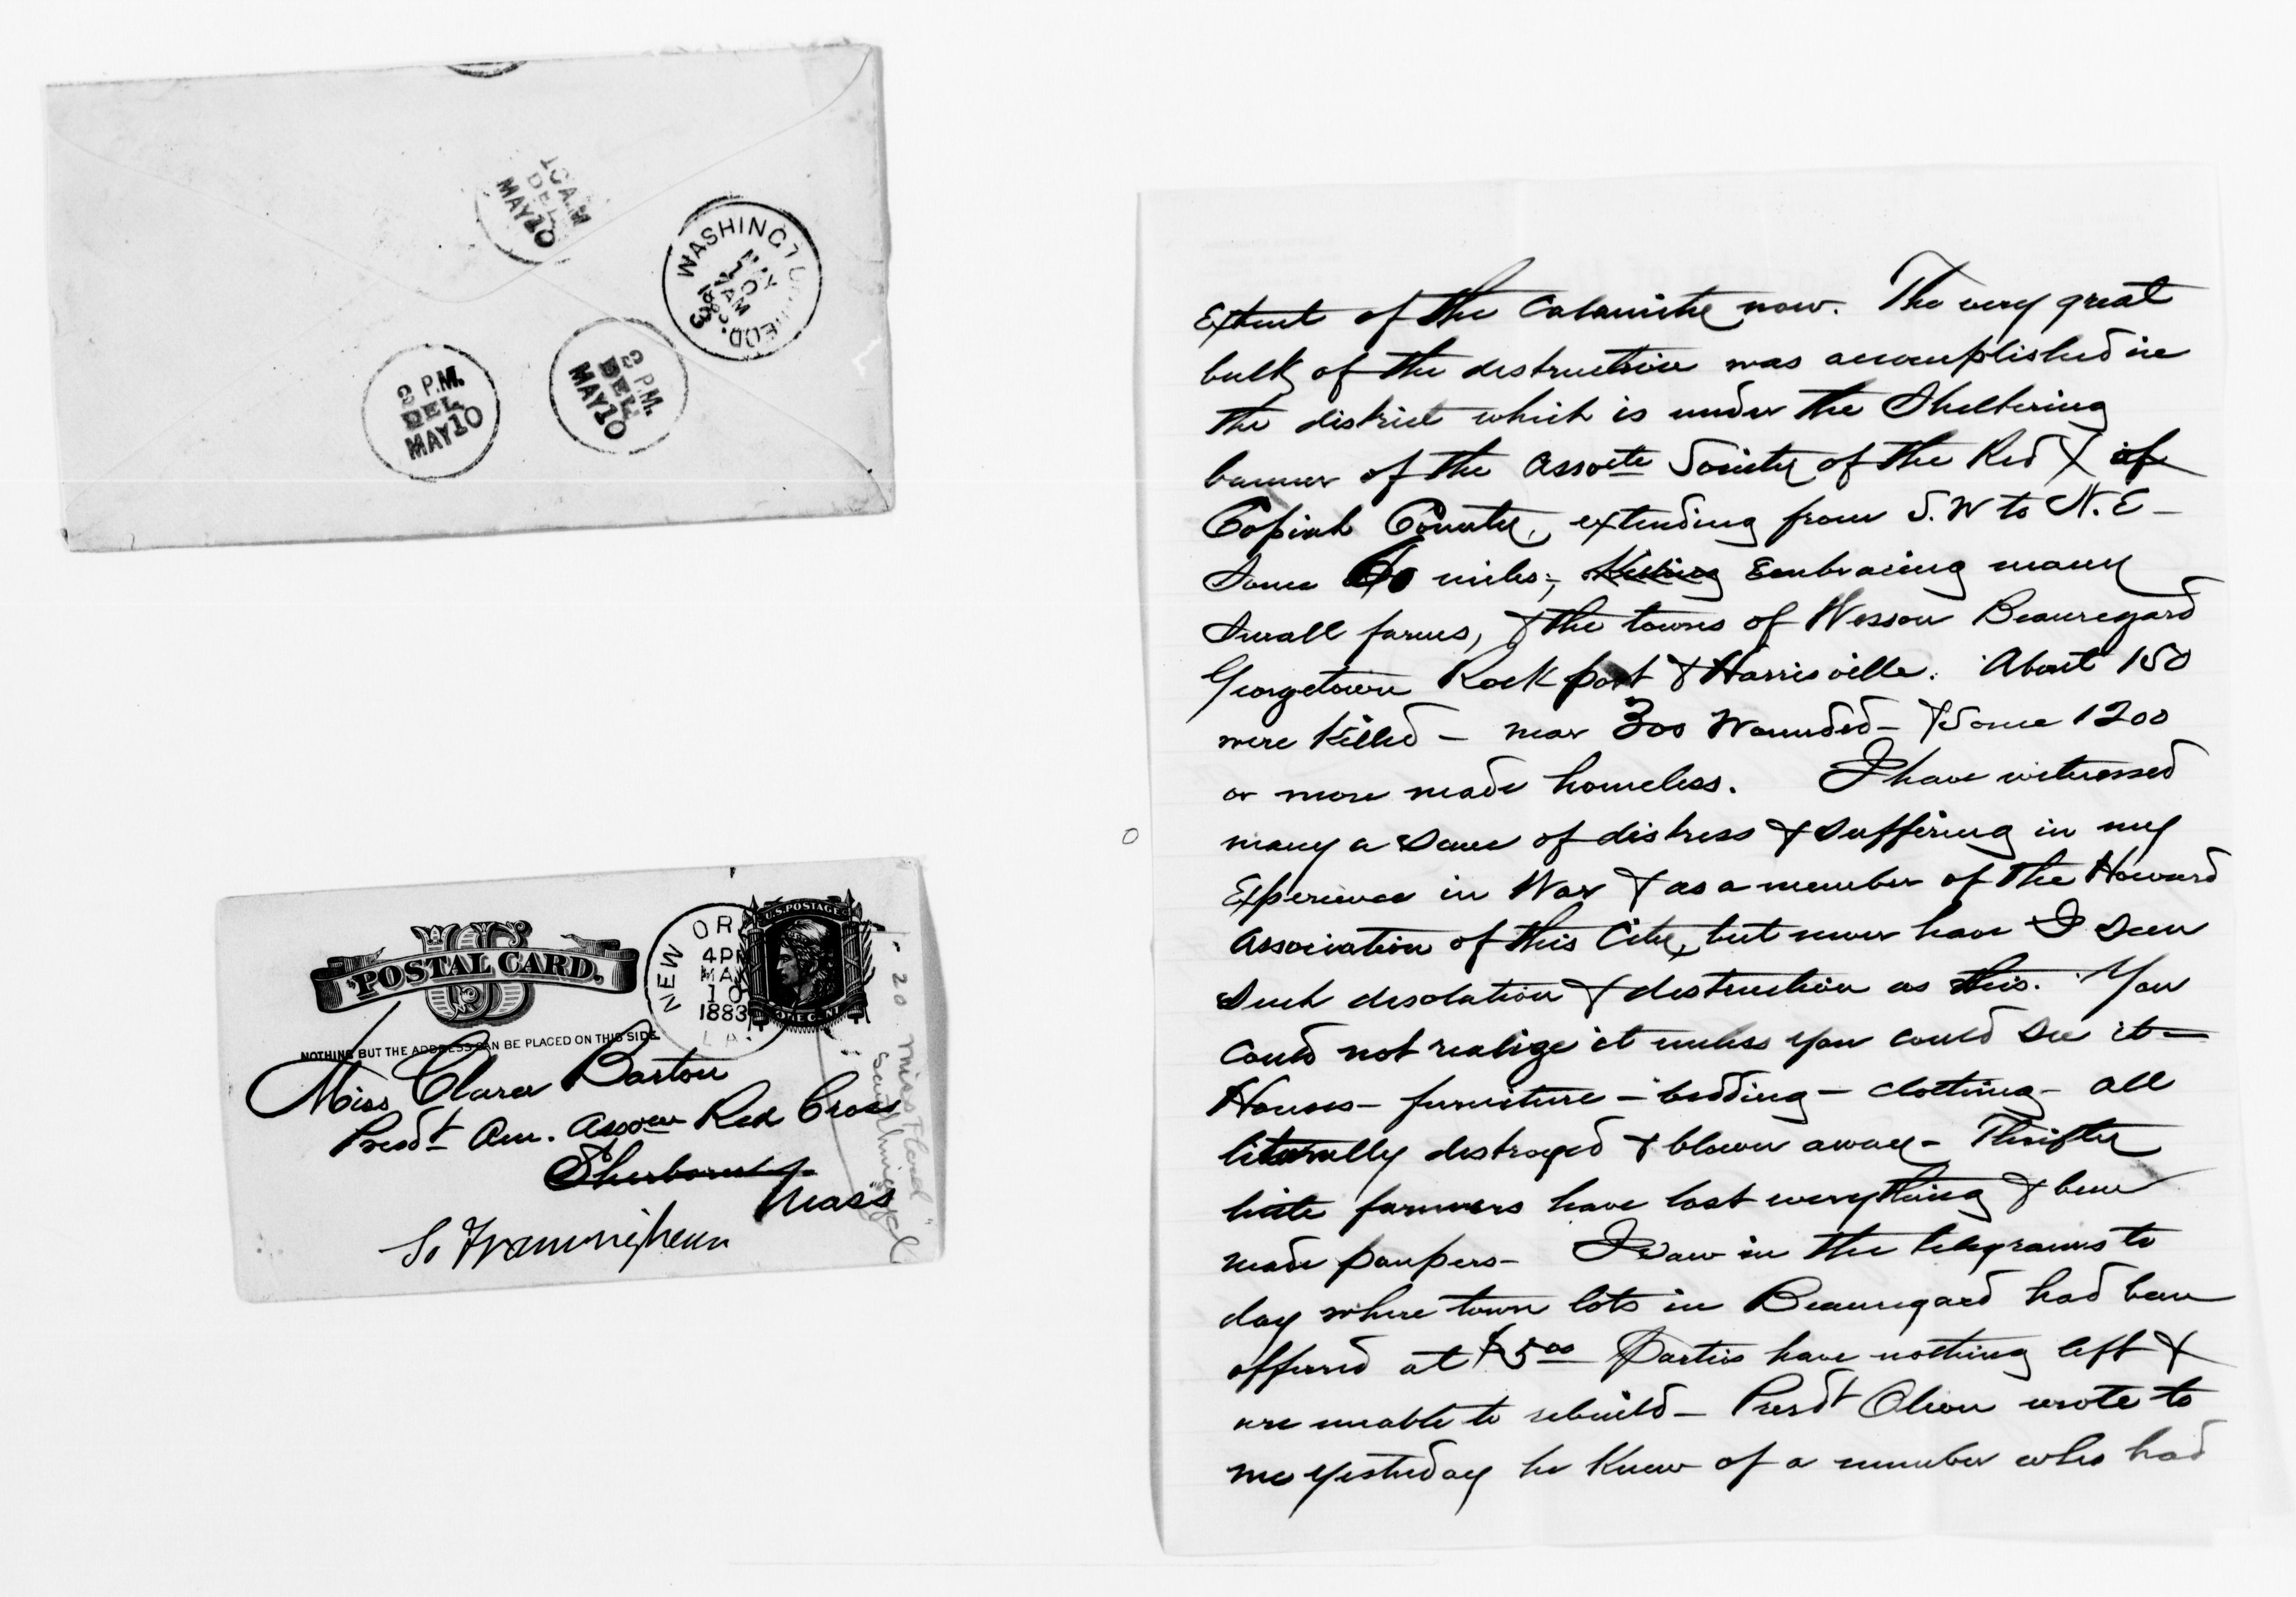 10 A.M
DEL
MAY 10
WASHINGTON RECD.
MAY
10
7 AM
1883
3 P.M.
DEL
MAY 10
3 P.M.
DEL
MAY 10
US
POSTAL CARD.
NOTHING BUT THE ADDRESS CAN BE PLACED ON THIS SIDE.
NEW OR
4 PM
MAY
10
1883
LA.
U.S. POSTAGE
ONE CENT
Miss Clara Barton
Presdt Am. Assocn Red Cross
Sherborn
Mass
So Framingham
20 Miss Flood
Extent of the Calamity now. The very great
bulk of the destruction was accomplished in
the district which is under the Sheltering
banner of the Assocte Society of the Red X of
Copiah County, extending from S.W to N.E -
Some 60 miles; Killing Embracing many
Small farms, & the towns of Wesson Beauregard
Georgetown Rockport & Harrisville. About 150
were Killed - near 300 Wounded - & Some 1200
or more made homeless. I have witnessed
many a Scene of distress & Suffering in my
Experience in War & as a member of the Howard
Association of this City, but never have I Seen
Such desolation & destruction as this. You
Could not realize it unless you could See it -
Houses - furniture - bedding - clothing - all
literally destroyed & blown away - Thrifty
little farmers have lost everything & been
made paupers - I Saw in the telegrams to
day where town lots in Beauregard had been
offered at $5.00 Parties have nothing left &
are unable to rebuild - Presdt Olson wrote to
me yesterday he Knew of a number who had